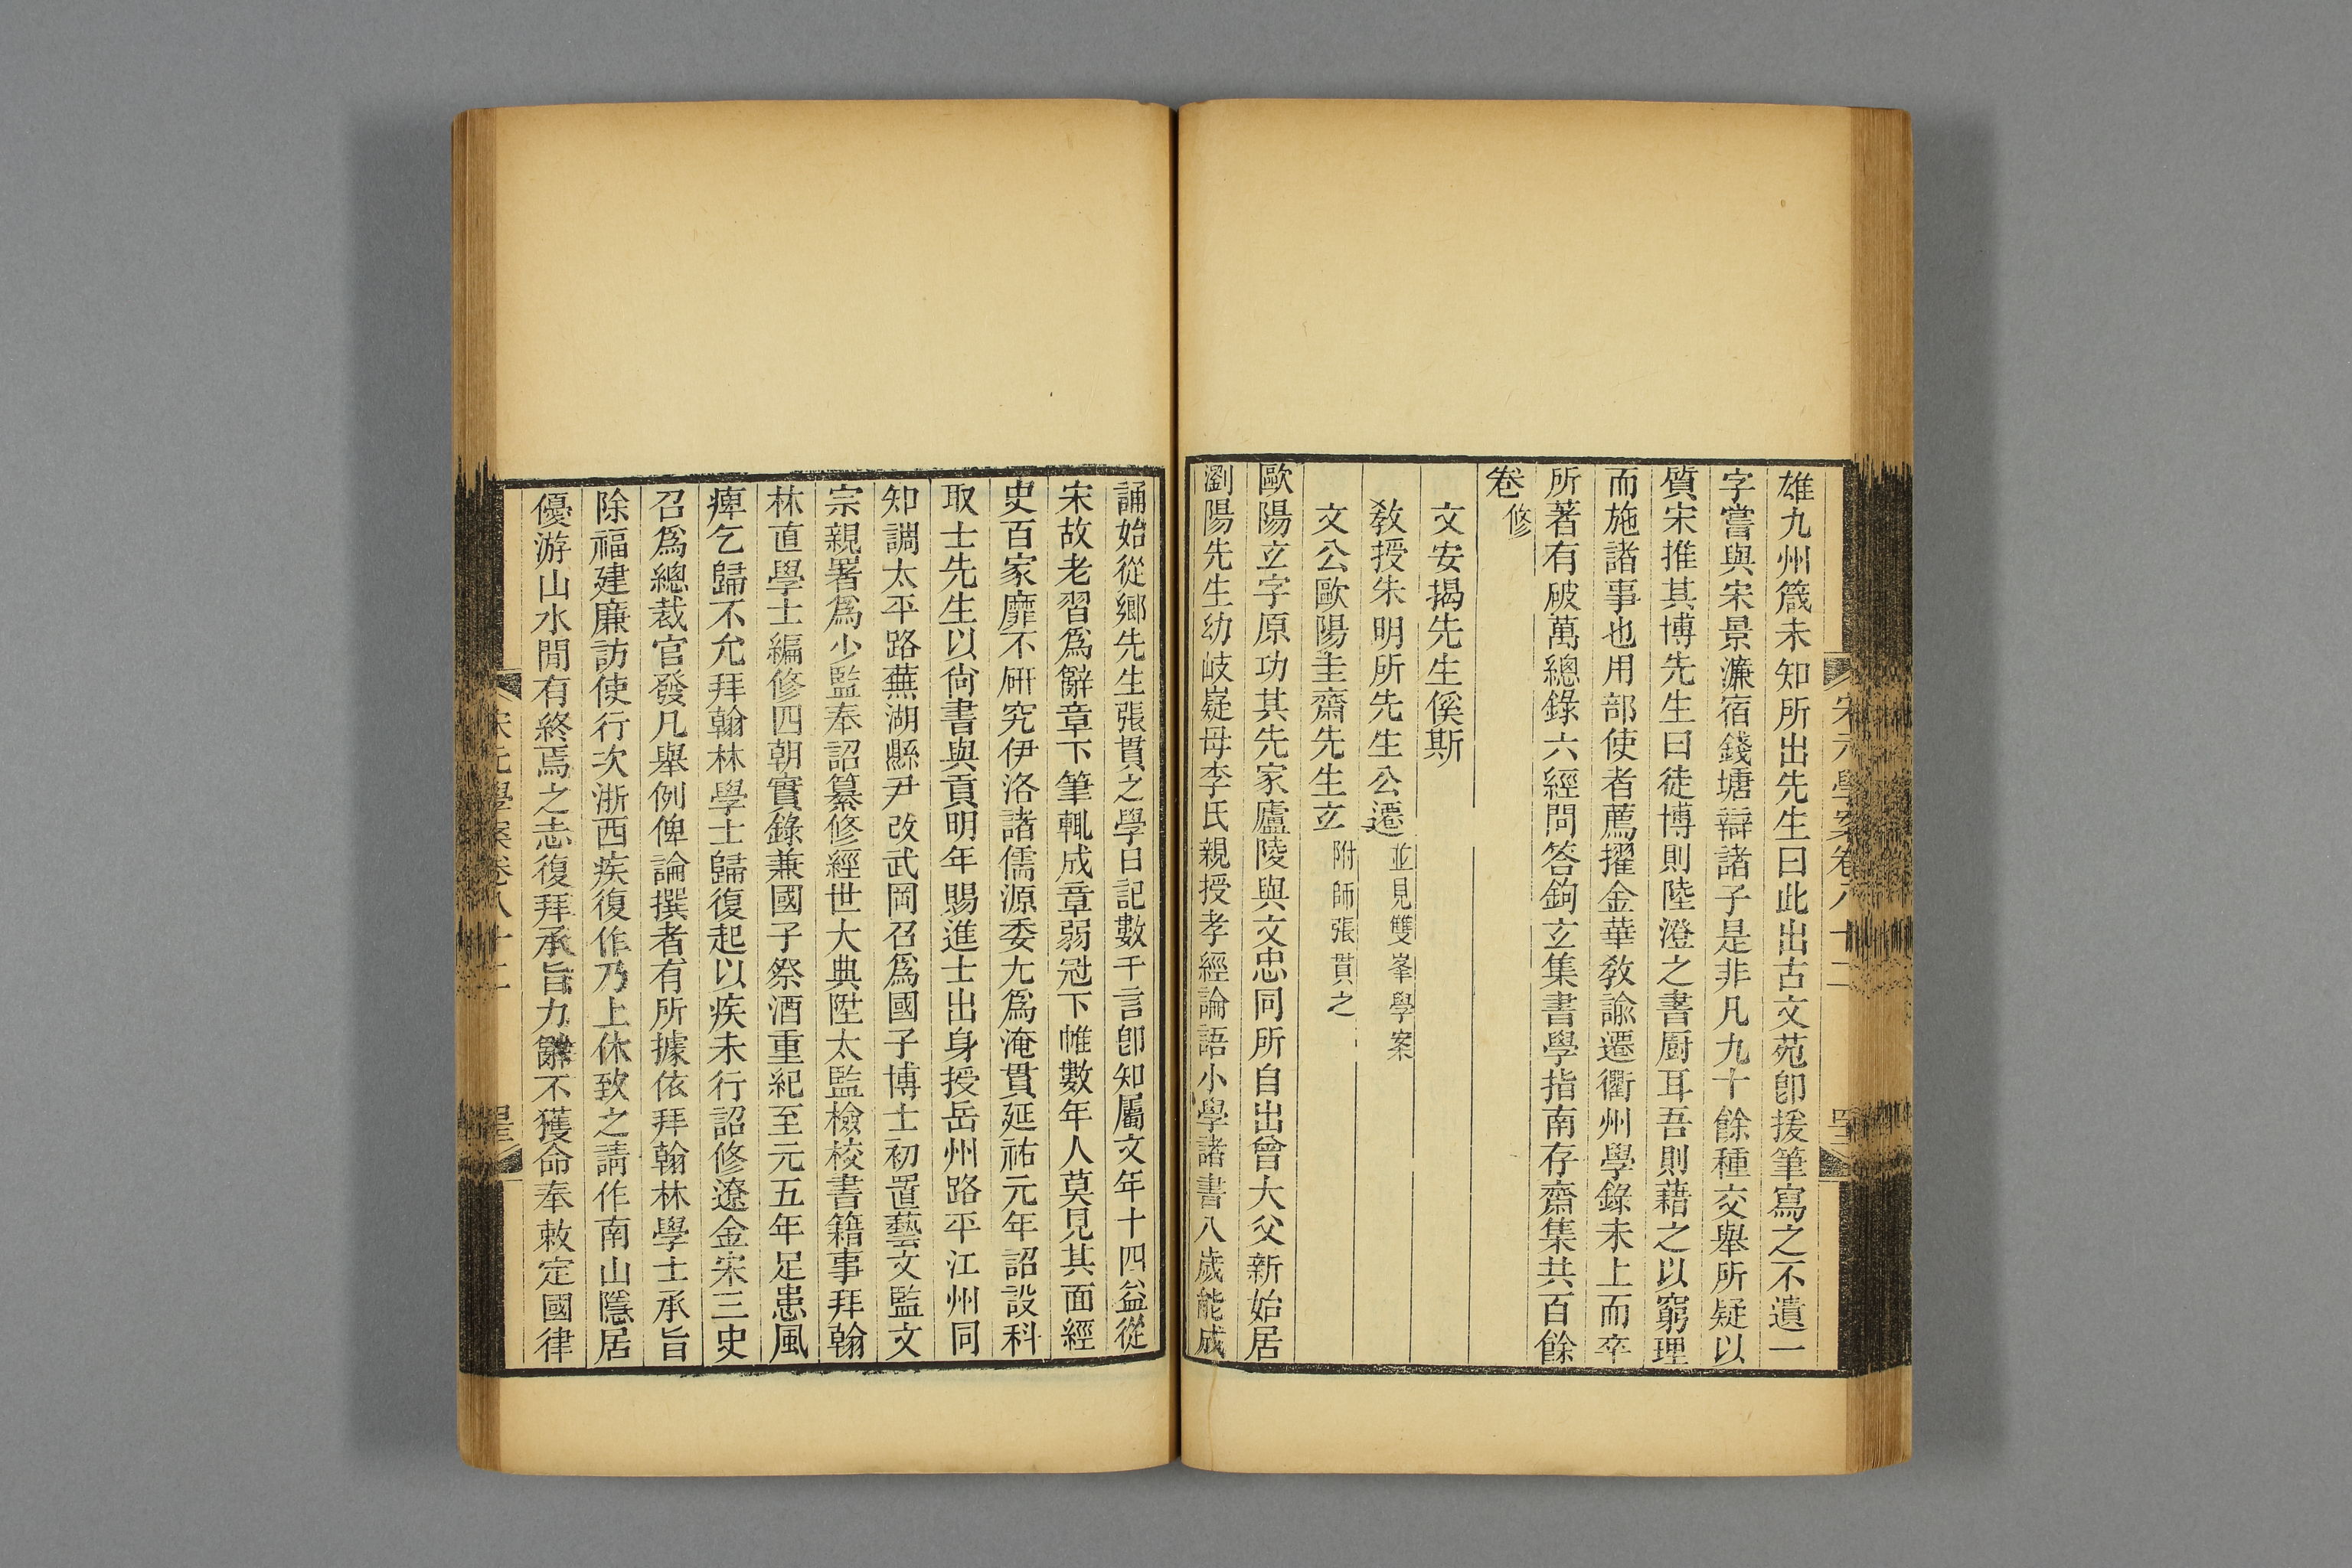 雄九州箴未知所出先生曰此出古文苑卽援筆寫之不遺一
字嘗與宋景濂宿錢塘辯諸子是非凡九十餘種交舉所疑以
質宋推其博先生曰徒博則陸澄之書厨耳吾則藉之以窮理
而施諸事也用部使者薦擢金華敎諭遷衢州學錄未上而卒
所著有破萬總錄六經問答鉤玄集書學指南存齋集共百餘
卷修
文安揭先生傒斯
敎授朱明所先生公遷並見雙峯學案
文公歐陽圭齋先生玄附師張貫之
歐陽玄字原功其先家廬陵與文忠同所自出曾大父新始居
瀏陽先生幼岐嶷母李氏親授孝經論語小學諸書八歲能成
誦始從鄉先生張貫之學日記數千言卽知屬文年十四益從
宋故老習爲辭章下筆輒成章弱冠下帷數年人莫見其面經
史百家靡不硏究伊洛諸儒源委尤爲淹貫延祐元年詔設科
取士先生以尙書與貢明年賜進士出身授岳州路平江州同
知調太平路蕪湖縣尹改武岡召爲國子博士初置藝文監文
宗親署爲少監奉詔纂修經世大典陞太監檢校書籍事拜翰
林直學士編修四朝實錄兼國子祭酒重紀至元五年足患風
痺乞歸不允拜翰林學士歸復起以疾未行詔修遼金宋三史
召爲總裁官發凡舉例俾論撰者有所據依拜翰林學士承旨
除福建廉訪使行次浙西疾復作乃上休致之請作南山隱居
優游山水閒有終焉之志復拜承旨力辭不獲命奉敕定國律
宋元學案卷八十二